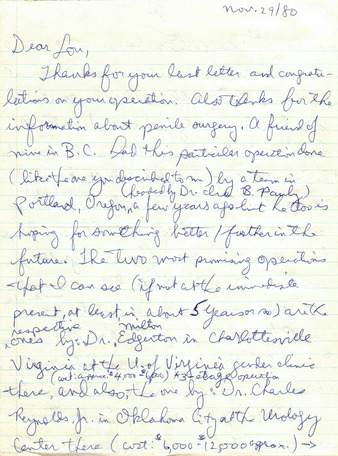 Nov. 29/80
Dear Lou,
Thanks for your last letter and congratu-
lations on your operation. Also thanks for the
information about penile surgery. A friend of
mine in B.C. had this particular operation done
(like the one you described to me) by a team in
(headed by Dr. B.
Portland, Oregon, a few years ago but he too is
hoping for something better / further in the
future. The two most promising operations
that I can see (if not at the immediate
present, at least, in about 5 years or so) are the
respective Milton
ones by: Dr. Edgerton in Charlottesville
Virginia at the U. of Virginia gender clinic
(cost: approx. $4,000 3-stage operation
there, and also, the one by: Dr. Charles
Reynolds, Jr. in Oklahoma City at the Urology
Center there (cost: $6,000-$12,000 approx.) →